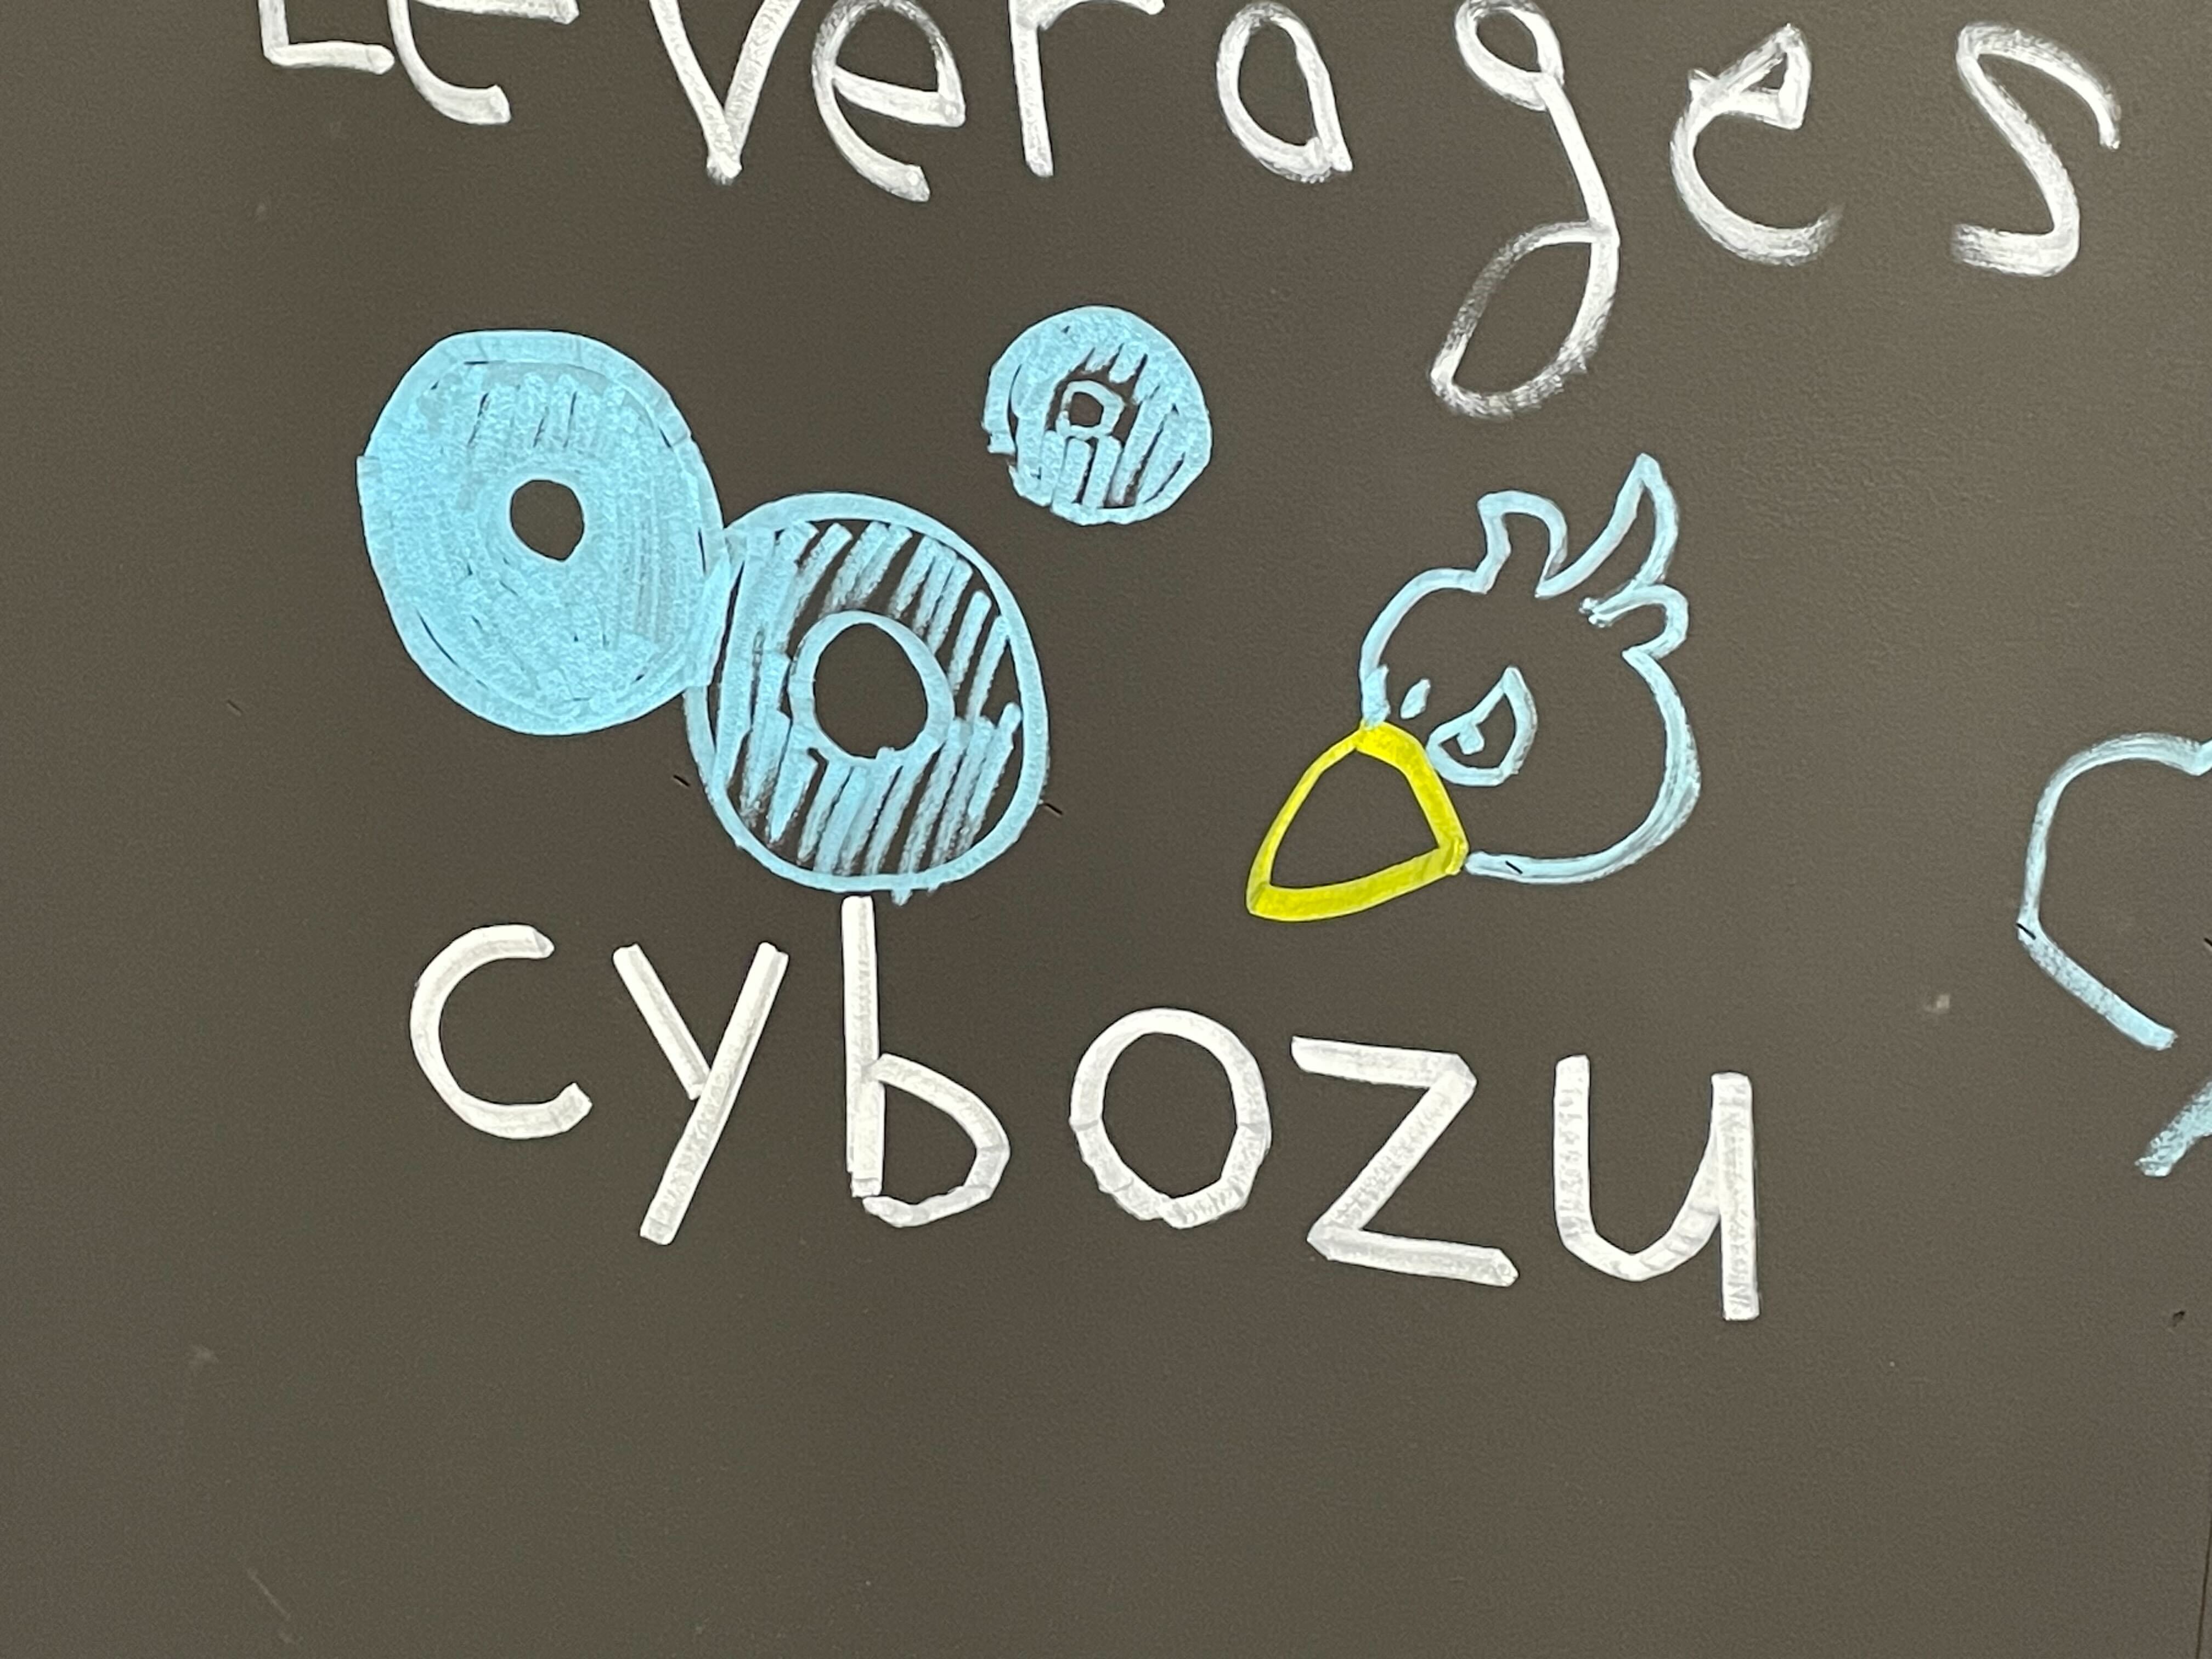 Leverages
cybozu